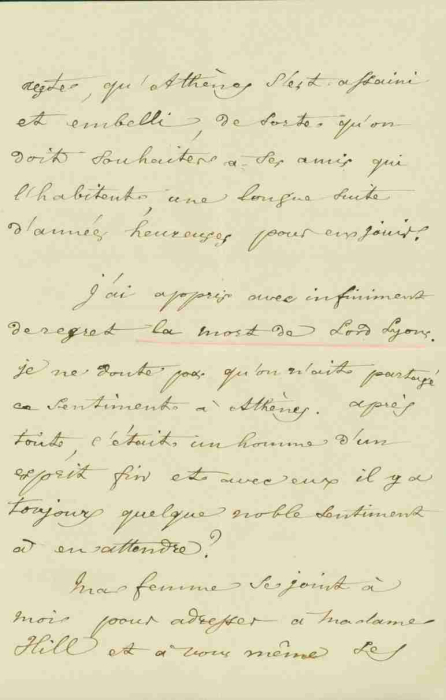 restes, qu'Athènes s'est assaini
et embelli, de sorte qu'on
doit souhaiter à ses amis qui
l'habitent, une longue suite
d'années heureuses pour en jouir.
j'ai appris avec infiniment
de regret la mort de Lord Lyons.
je ne doute pas qu'on n'ait partagé
ce sentiment à Athènes. après
tout, c'était un homme d'un
esprit fin et avec eux il y a
toujours quelque noble sentiment
à en attendre?
Ma femme se joint à
moi pour adresser à Madame
Hill et à vous même les